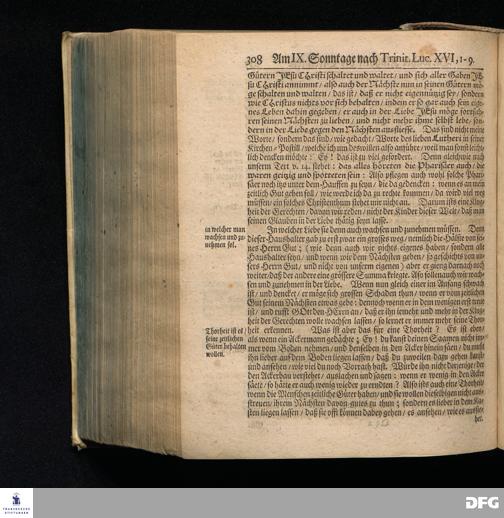 308 Am IX. Sonntage nach Trinit. Luc. XVI, 1-9.
Gütern JEsu CHristi schaltet und waltet / und sich aller Gaben JE-
su CHristi annimmt / also auch der Nächste nun in seinen Gütern mö-
ge schalten und walten / das ist / daß er nicht eigennützig sey / sondern
wie CHristus nichts vor sich behalten / indem er so gar auch sein eige-
nes Leben dahin gegeben / er auch in der Liebe JEsu möge forschen
seinen Nächsten zu lieben / und nicht mehr ihme selbst lebe / son-
dern in der Liebe gegen den Nächsten ausfliesse. Das sind nicht meine
Worte / sondern das sind / wie gedacht / Worte des lieben Lutheri in seiner
Kirchen-Postill / welche ich um deswillen also anführe / weil man sonst leicht-
lich dencken möchte: Ey! das ist zu viel gefordert. Denn gleichwie nach
unserm Text v. 14. stehet: das alles höreten die Pharisäer auch / die
waren geitzig und spotteten sein: Also pflegen auch wohl solche Phari-
säer noch itzo unter dem Hauffen zu seyn / die da gedencken: wenn es an mein
zeitlich Gut gehen soll / wie werde ich da zu rechte kommen / da wird viel weg
müssen / ein solches Christenthum stehet mir nicht an. Darum ists eine Klug-
heit der Gerechten / davon wir reden / nicht der Kinder dieser Welt / daß man
seinen Glauben in der Liebe thätig seyn lasse.
in welcher man
wachsen und zu-
nehmen sol.
In welcher Liebe sie denn auch wachsen und zunehmen müssen. Denn
dieser Haushalter gab zu erst zwar ein grosses weg / nemlich die Hälfte von sei-
nes Herrn Gut; (wie denn auch wir nichts eigenes haben / sondern alle
Haushalter seyn / und wenn wir dem Nächsten geben / so geschichts von un-
sers Herrn Gut / und nicht von unserm eigenen) aber er gieng darnach noch
weiter / daß der andere eine grössere Summa kriegte. Also soll man auch wach-
sen und zunehmen in der Liebe. Wenn nun gleich einer im Anfang schwach
ist / und dencket / er möge sich grossen Schaden thun / wenn er von dem zeitlichen
Gut seinem Nächsten etwas gebe: dennoch wenn er in dem wenigsten treu
ist / und rufft GOtt den HErrn an / daß er ihn iemehr und mehr in der Klug-
heit der Gerechten wolle wachsen lassen / so lernet er immer mehr seine Thor-
Thorheit ist es
seine zeitlichen
Güter behalten
wollen.
heit erkennen. Was ist aber das für eine Thorheit? Es ist eben
als wenn ein Ackermann gedächte; Ey! du kanst deinen Saamen nicht im-
mer vom Boden nehmen / und denselben in den Acker hinein säen / du wilst
ihn lieber auf dem Boden liegen lassen / daß du zuweilen dazu gehen kanst
und ansehen / wie viel du noch Vorrath hast. Würde ihn nicht derjenige / der
den Ackerbau verstehet / auslachen und sagen: wenn er wenig in den Acker
säete / so hätte er auch wenig wieder zu erndten? Also ists auch eine Thorheit /
wenn die Menschen zeitliche Güter haben / und sie wollen dieselbigen nicht aus-
streuen / ihrem Nächsten davon gutes zu thun; sondern es lieber in dem Ka-
sten liegen lassen / daß sie offt können dabey gehen / es ansehen / wie es ausse-
het.
FRANCKESCHE
STIFTUNGEN
DFG